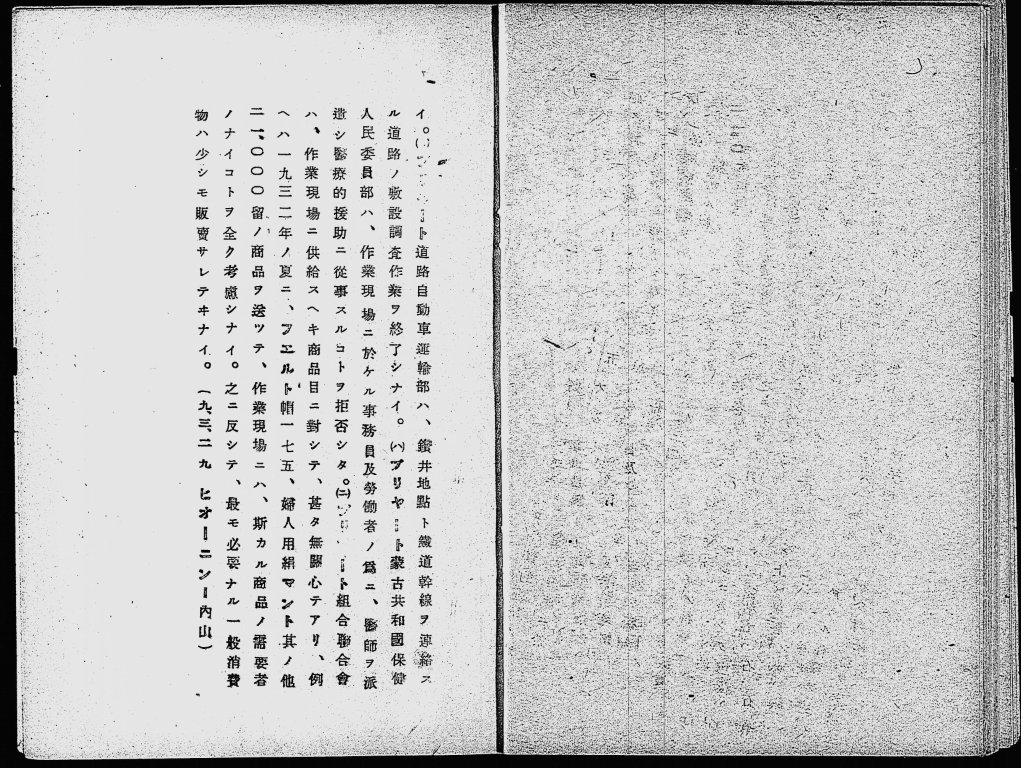 イ。(ロ)ブリヤート道路自動車運輸部ハ、鑽井地點ト鐵道幹線ヲ連絡ス
ル道路ノ敷設調査作業ヲ終了シナイ。(ハ)ブリヤート蒙古共和國保健
人民委員部ハ、作業現場ニ於ケル事務員及勞働者ノ爲ニ、醫師ヲ派
遣シ醫療的援助ニ從事スルコトヲ拒否シタ。(ニ)ブリヤート組合聯合會
ハ、作業現場ニ供給スヘキ商品目ニ對シテ、甚タ無關心テアリ、例
ヘハ一九三二年ノ夏ニ、フエルト帽一七五、婦人用絹マント其ノ他
二一、〇〇〇留ノ商品ヲ送ツテ、作業現場ニハ、斯カル商品ノ需要者
ノナイコトヲ全ク考慮シナイ。之ニ反シテ、最モ必要ナル一般消費
物ハ少シモ販賣サレテヰナイ。(一九、三、二九 ヒオーニンー內山)